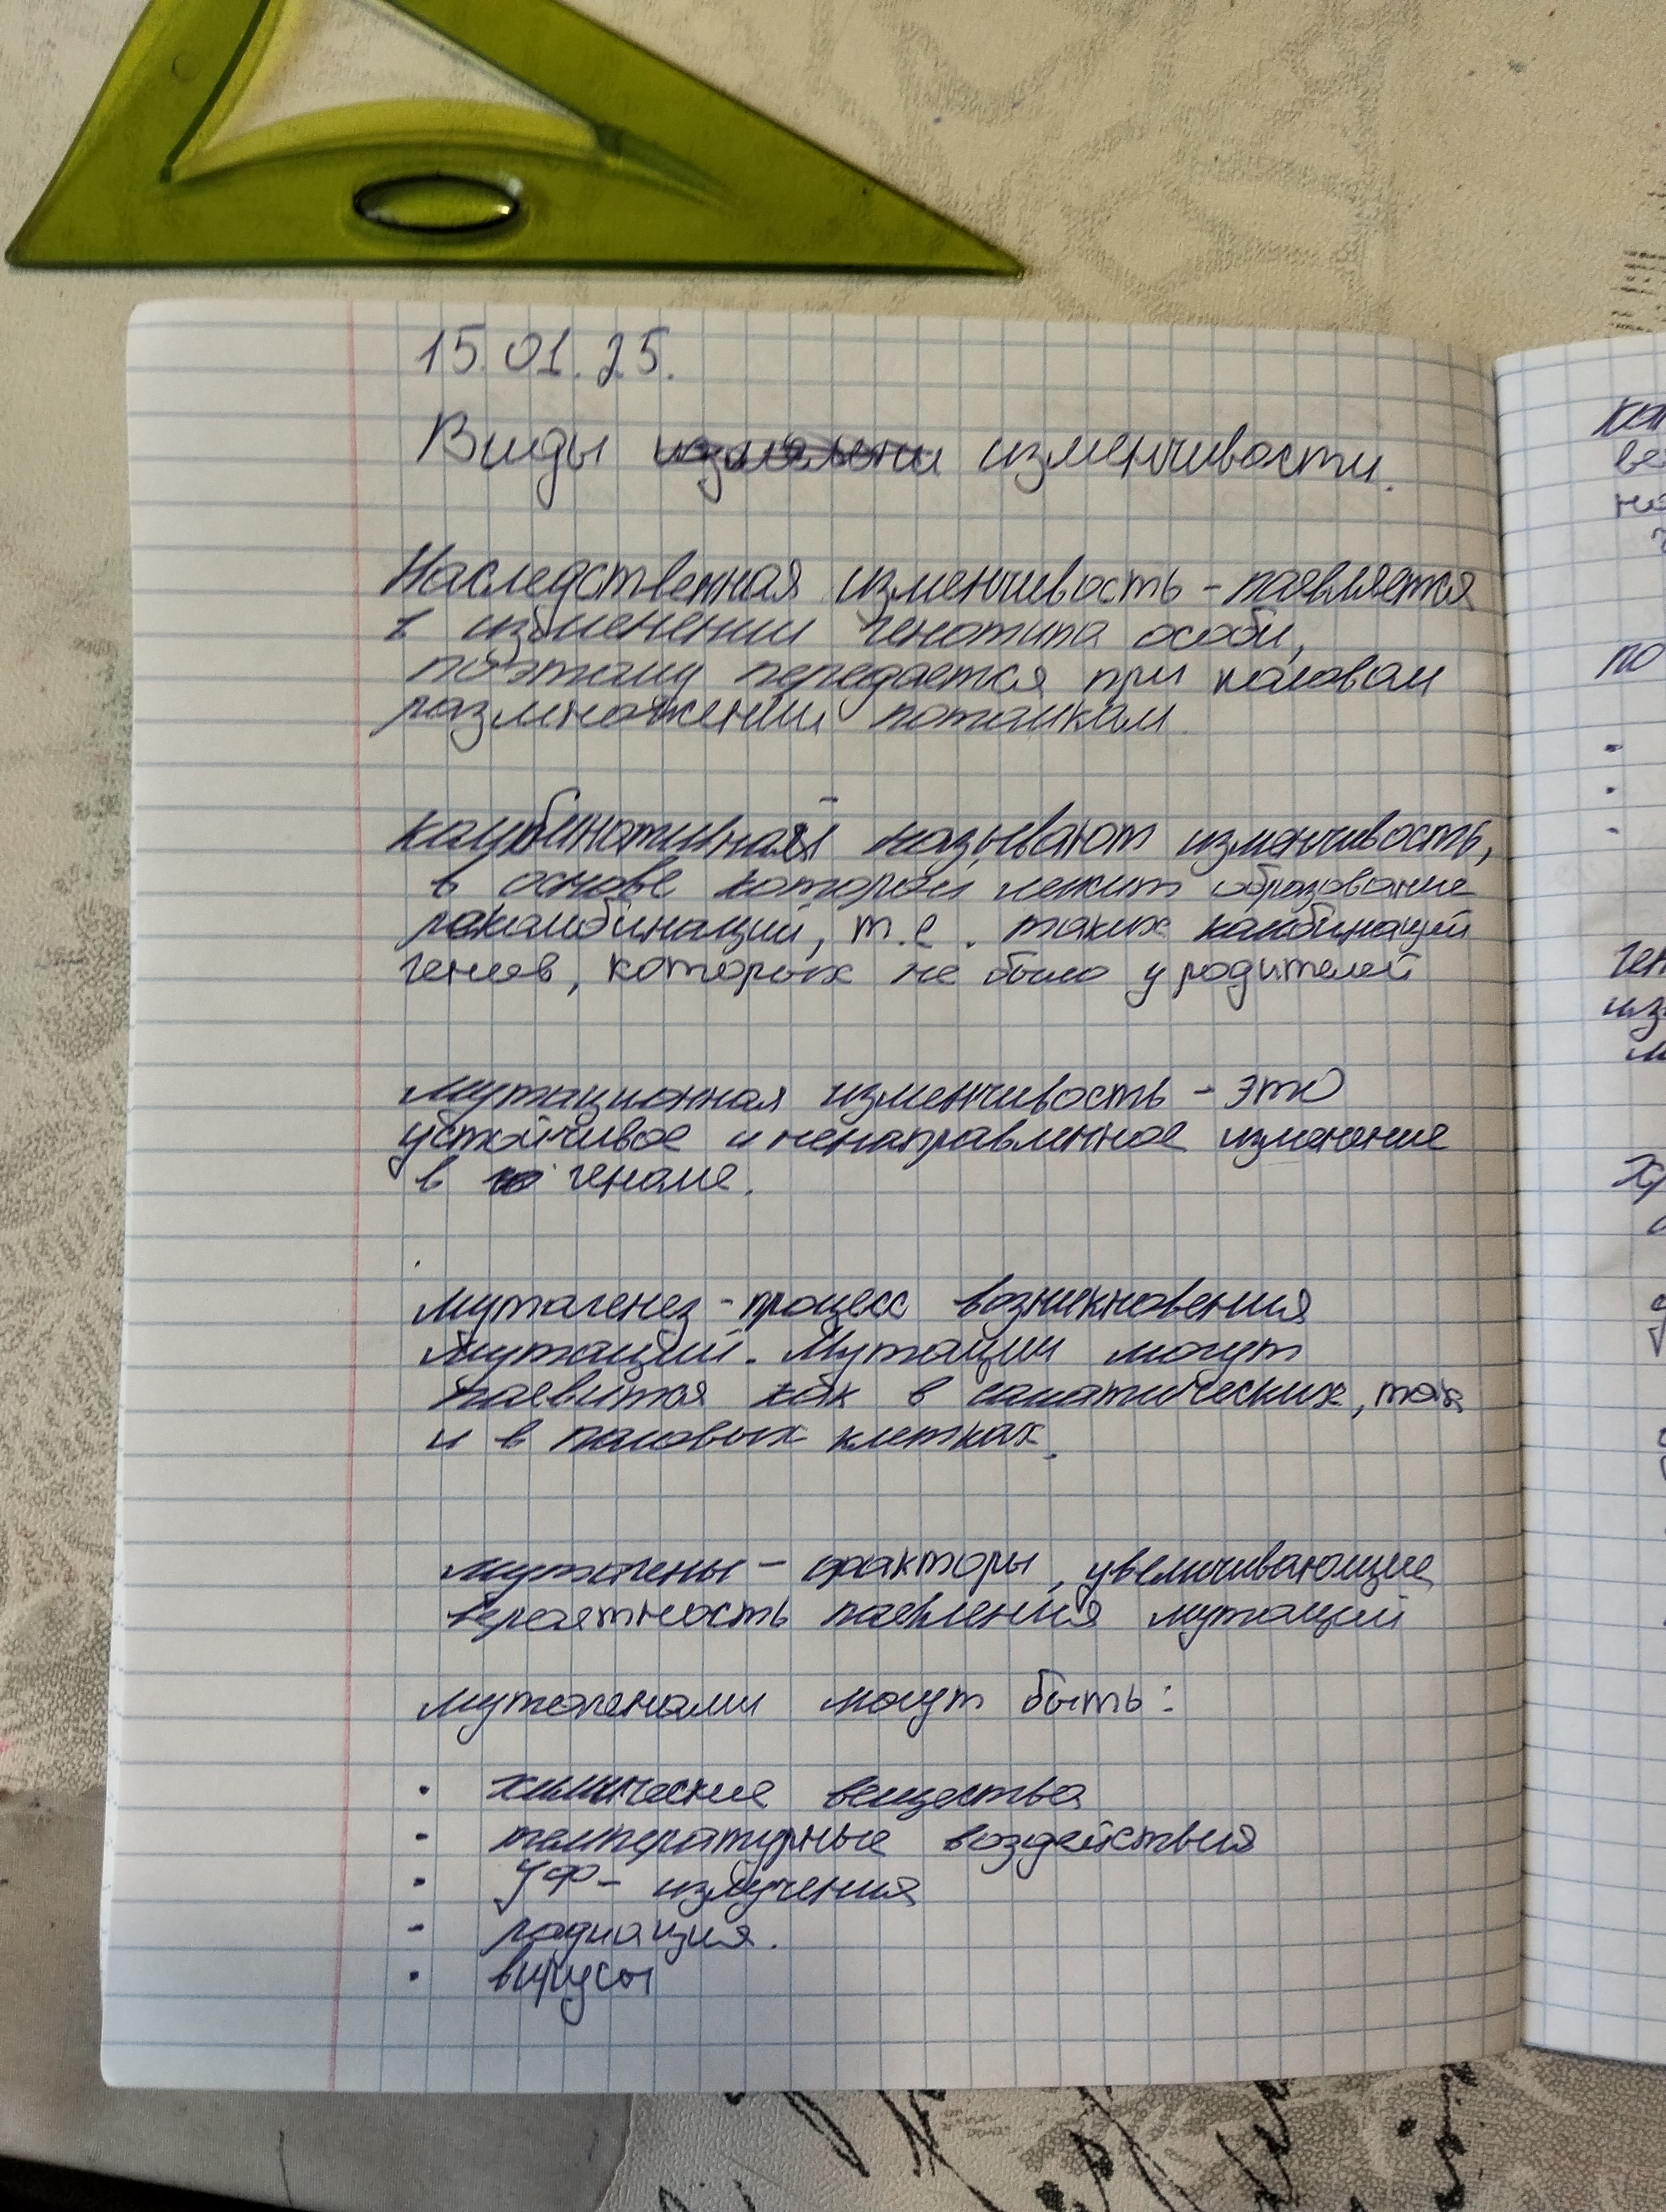 15.01.25.
Виды измени изменчивости.
Наследственная изменчивость - появляется
в изменении генотипа особи,
поэтому передается при половом
размножении потомкам.
комбинативной называют изменчивость,
в основе которой лежит образование
рекомбинаций, т.е. таких комбинаций
генов, которых не было у родителей
мутационная изменчивость - это
устойчивое и ненаправленное изменение
в геноме.
мутагенез - процесс возникновения
мутаций. Мутации могут
появится как в соматических, так
и в половых клетках.
мутагены - факторы, увеличивающие
вероятность появления мутаций
мутагенами могут быть:
· химические вещества
- температурные воздействия
· УФ - излучения
- радиация.
· вирусы
ве
по
ген
из